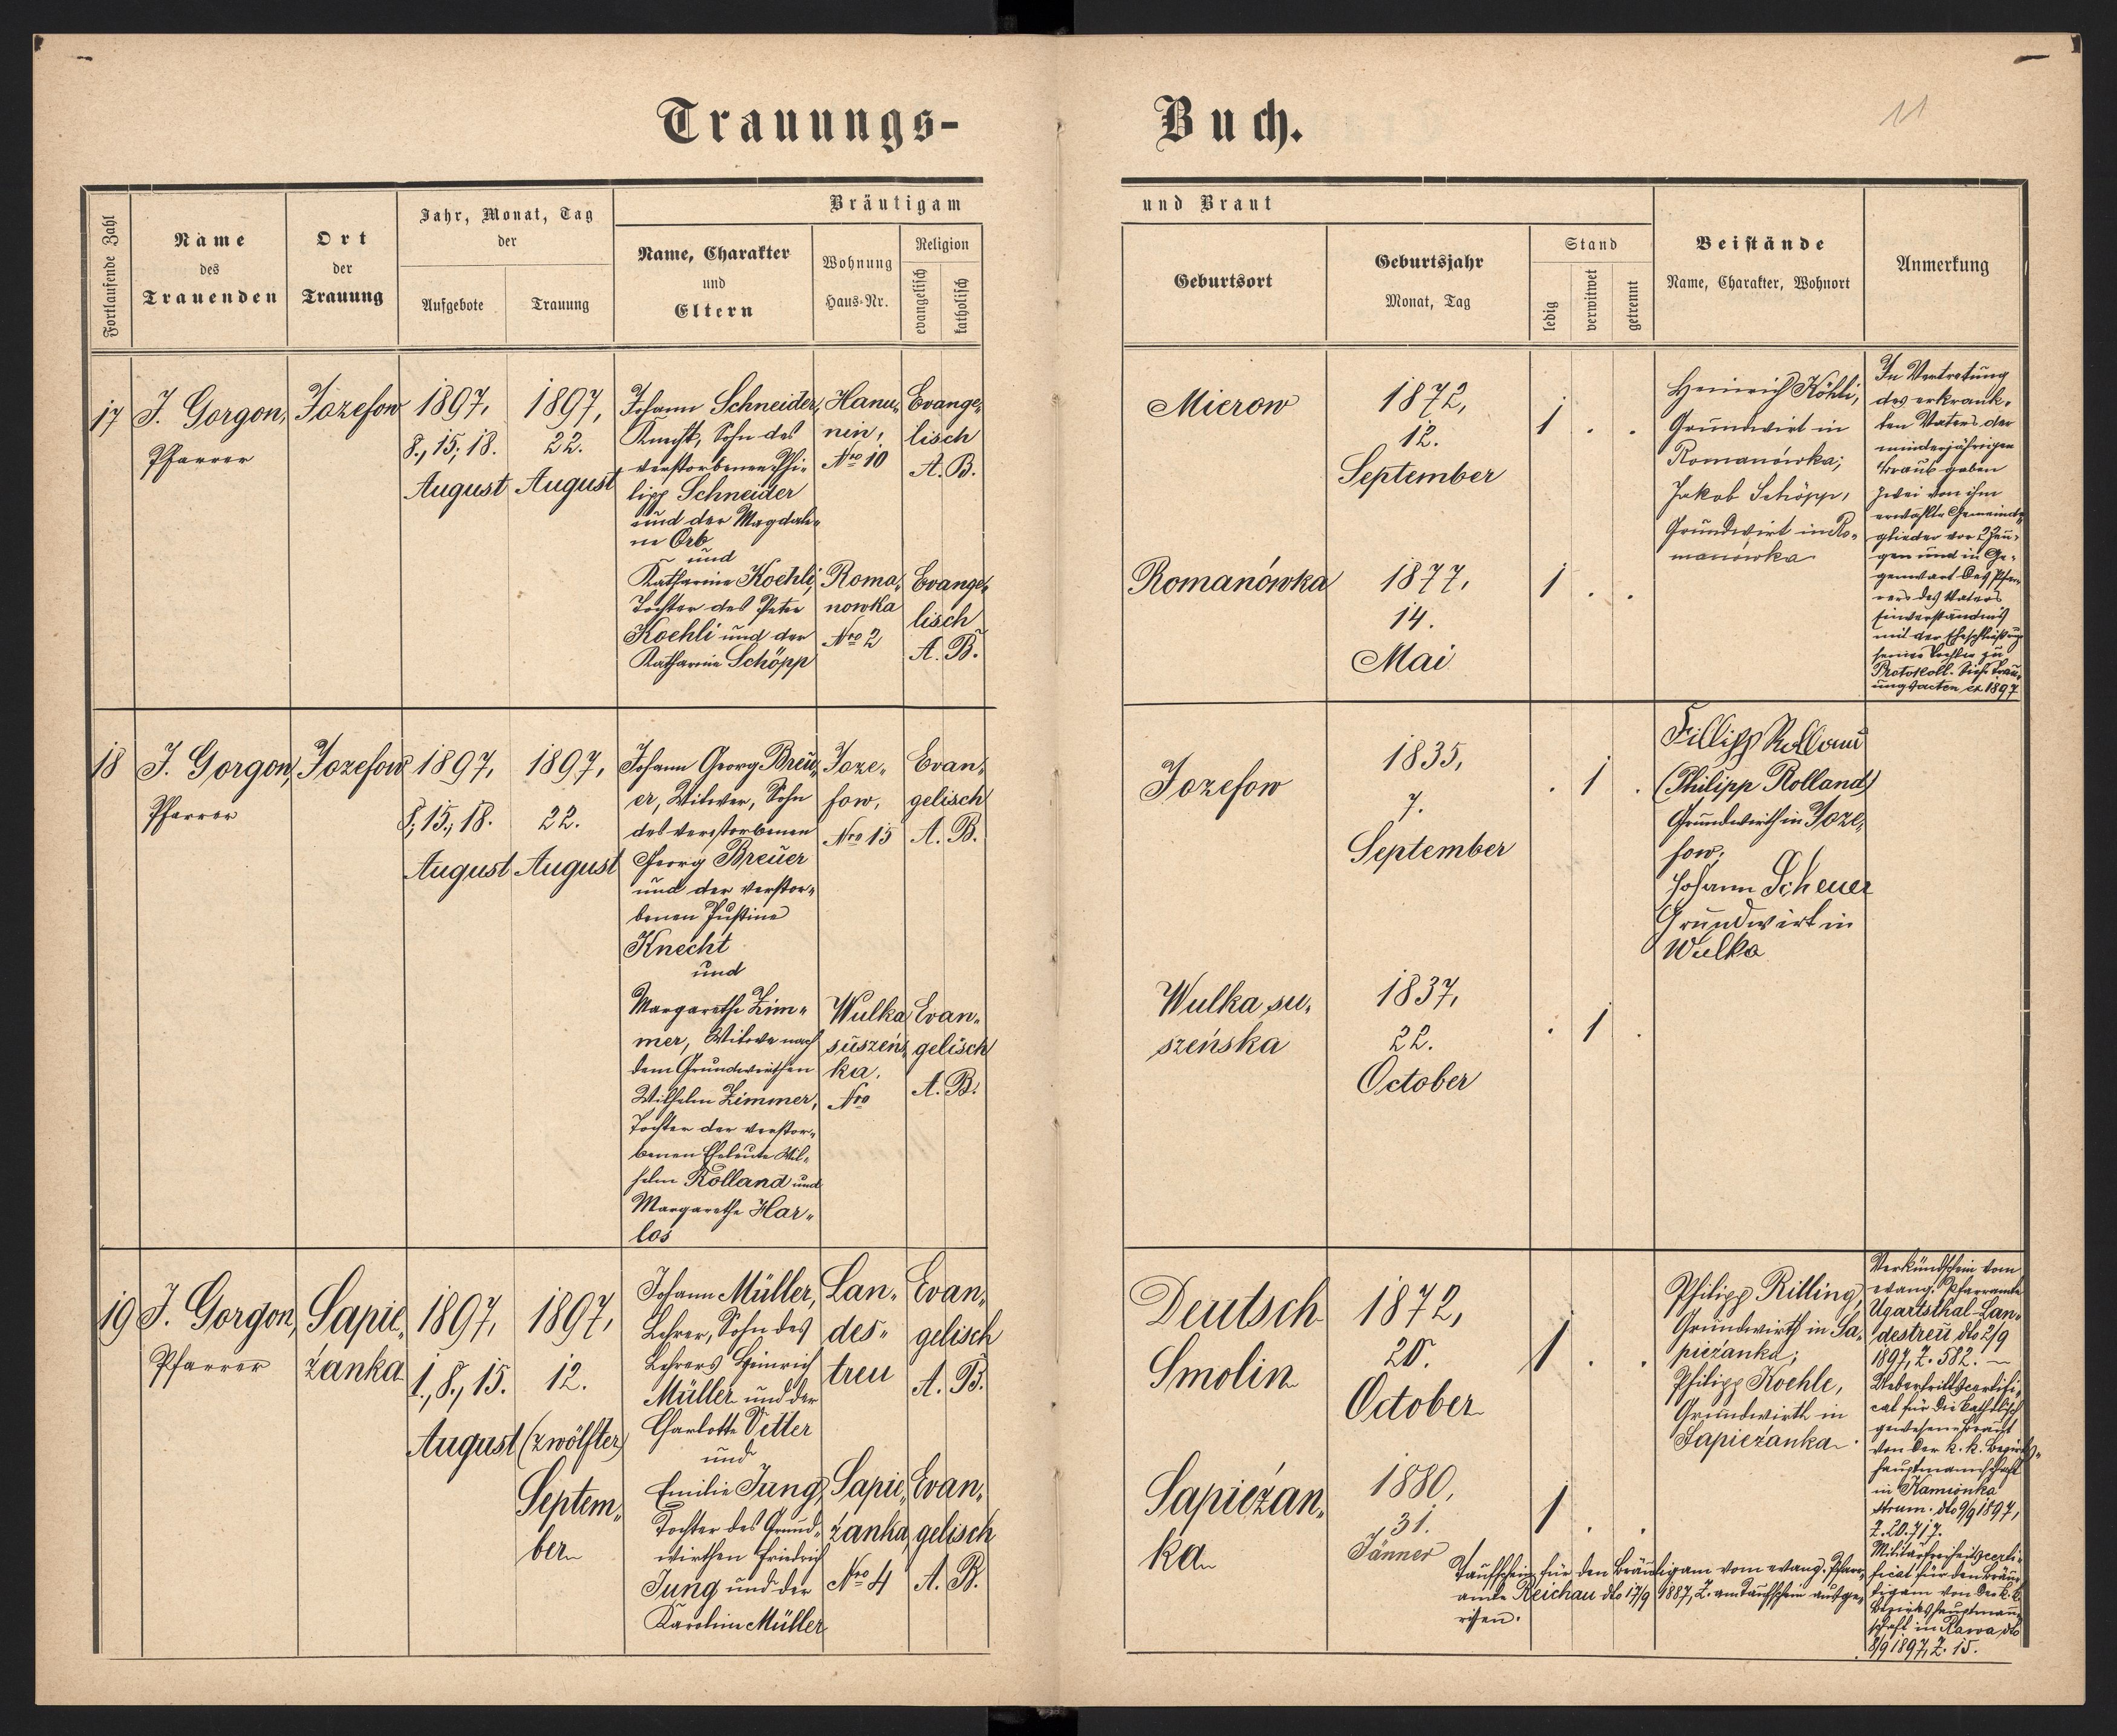 Trauungs-
Buch.
11
Fortlaufende Zahl
Name
des
Trauenden
Ort
der
Trauung
Jahr, Monat, Tag
der
Aufgebote
Trauung
Bräutigam
Name, Charakter
und
Eltern
Wohnung
Haus-Nr.
Religion
evangelisch
katholisch
und Braut
Geburtsort
Geburtsjahr
Monat, Tag
Stand
ledig
verwitwet
getrennt
Beistände
Name, Charakter, Wohnort
Anmerkung
17
J. Gorgon,
Pfarrer
Jozefow
1897,
8., 15., 18.
August
1897,
22.
August
Johann Schneider,
Knecht, Sohn des
verstorbenen Phi-
lipp Schneider
und der Magdale-
ne Orb
und
Katharine Koehli,
Tochter des Peter
Koehli und der
Katharine Schöpp
Hanu-
nin,
Nro 10
Roma-
nowka
Nro 2
Evange-
lisch
A. B.
Evange-
lisch
A. B.
Mierow
1872,
12.
September
1 . .
Romanówka
1877,
14.
Mai
1 . .
Heinrich Köhli,
Grundwirt in
Romanówka;
Jakob Schöpp,
Grundwirt in Ro-
manówka
In Vertretung
des erkrank-
ten Vaters der
minderjährigen
Braut gaben
zwei von ihm
erwählte Gemeinde-
glieder vor 2 Zeu-
gen und in Ge-
genwart des Pfar-
rers des Vaters
Einverständnis
mit der Eheschließung
seiner Tochter zu
Protokoll. Siehe Trau-
ungsacten ex 1897
18
J. Gorgon,
Pfarrer
Jozefow
1897,
8., 15., 18.
August
1897,
22.
August
Johann Georg Breu-
er, Witwer, Sohn
des verstorbenen
Georg Breuer
und der verstor-
benen Justine
Knecht
und
Margarethe Zim-
mer, Witwe nach
dem Grundwirthen
Wilhelm Zimmer,
Tochter der verstor-
benen Eheleute Wil-
helm Rolland und
Margarethe Har-
los
Joze-
fow,
Nro 15
Wulka
suszeńs-
ka.
Nro
Evan-
gelisch
A. B.
Evan-
gelisch
A. B.
Jozefow
1835,
7.
September
. 1 .
Wulka su-
szeńska
1837,
22.
October
. 1 .
Fillipp Rolland
(Philipp Rolland)
Grundwirth in Joze-
fow;
Johann Scheuer
Grundwirt in
Wulka
19
J. Gorgon,
Pfarrer
Sapie-
żanka
1897,
1., 8., 15.
August
1897,
12.
(zwölfter)
Septem-
ber
Johann Müller,
Lehrer, Sohn des
Lehrers Heinrich
Müller und der
Charlotte Vetter
und
Emilie Jung,
Tochter des Grund-
wirthen Friedrich
Jung und der
Karoline Müller
Lan-
des-
treu
Sapie-
żanka
Nro 4
Evan-
gelisch
A. B.
Evan-
gelisch
A. B.
Deutsch
Smolin
1872,
20.
October
1 . .
Sapieżan-
ka
1880,
31.
Jänner
1 . .
Philipp Rilling,
Grundwirth in Sa-
pieżanka;
Philipp Koehle,
Grundwirth in
Sapieżanka
Verkündschein vom
evang. Pfarramte
Ugartsthal-Lan-
destreu dto 2/9
1897, Z. 582. —
Uebertrittscertifi-
cat für die katholisch
gewesene Braut
von der k. k. Bezirks-
hauptmannschaft
in Kamionka
strum. dto 9/9 1897,
Z. 20.717.
Militärfreiheitscerti-
ficat für den Bräu-
tigam von der k. k.
Bezirkshauptmann-
schaft in Rawa dto
8/9 1897, Z. 15.
Taufschein für den Bräutigam vom evang. Pfarr-
amte Reichau dto 17/9 1887, Z. am Taufschein ausge-
rissen.